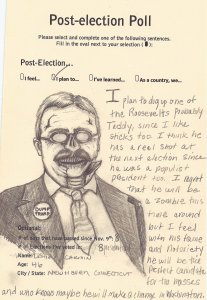 Post-election Poll
Please select and complete one of the following sentences.
Fill in the oval next to your selection
Post-Election...
I feel... I plan to... I've learned... As a country, we...
I plan to dig up one
of the Roosevelts probably
Teddy, since I like
sticks too. I think he
has a real shot at
the next election since
he was a populist
President too. I regret
that he will be
a zombie this
time around
but I feel
with his fame
and notoriety
he will be the
perfect candidate
for the masses
and who knows maybe he will make a change in Washington
DUMP TRUMP
Optional:
# of days that have passed since Nov. 9th: 8
Name:
Age: 46
City / State: Connecticut